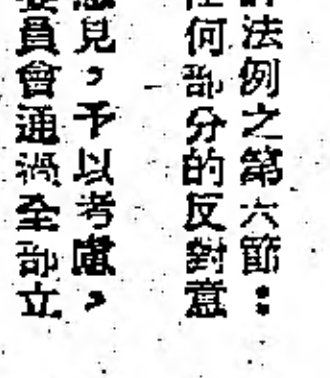 法例之第六節：
任何部分的反對意
見，予以考慮，
員會通過全部立